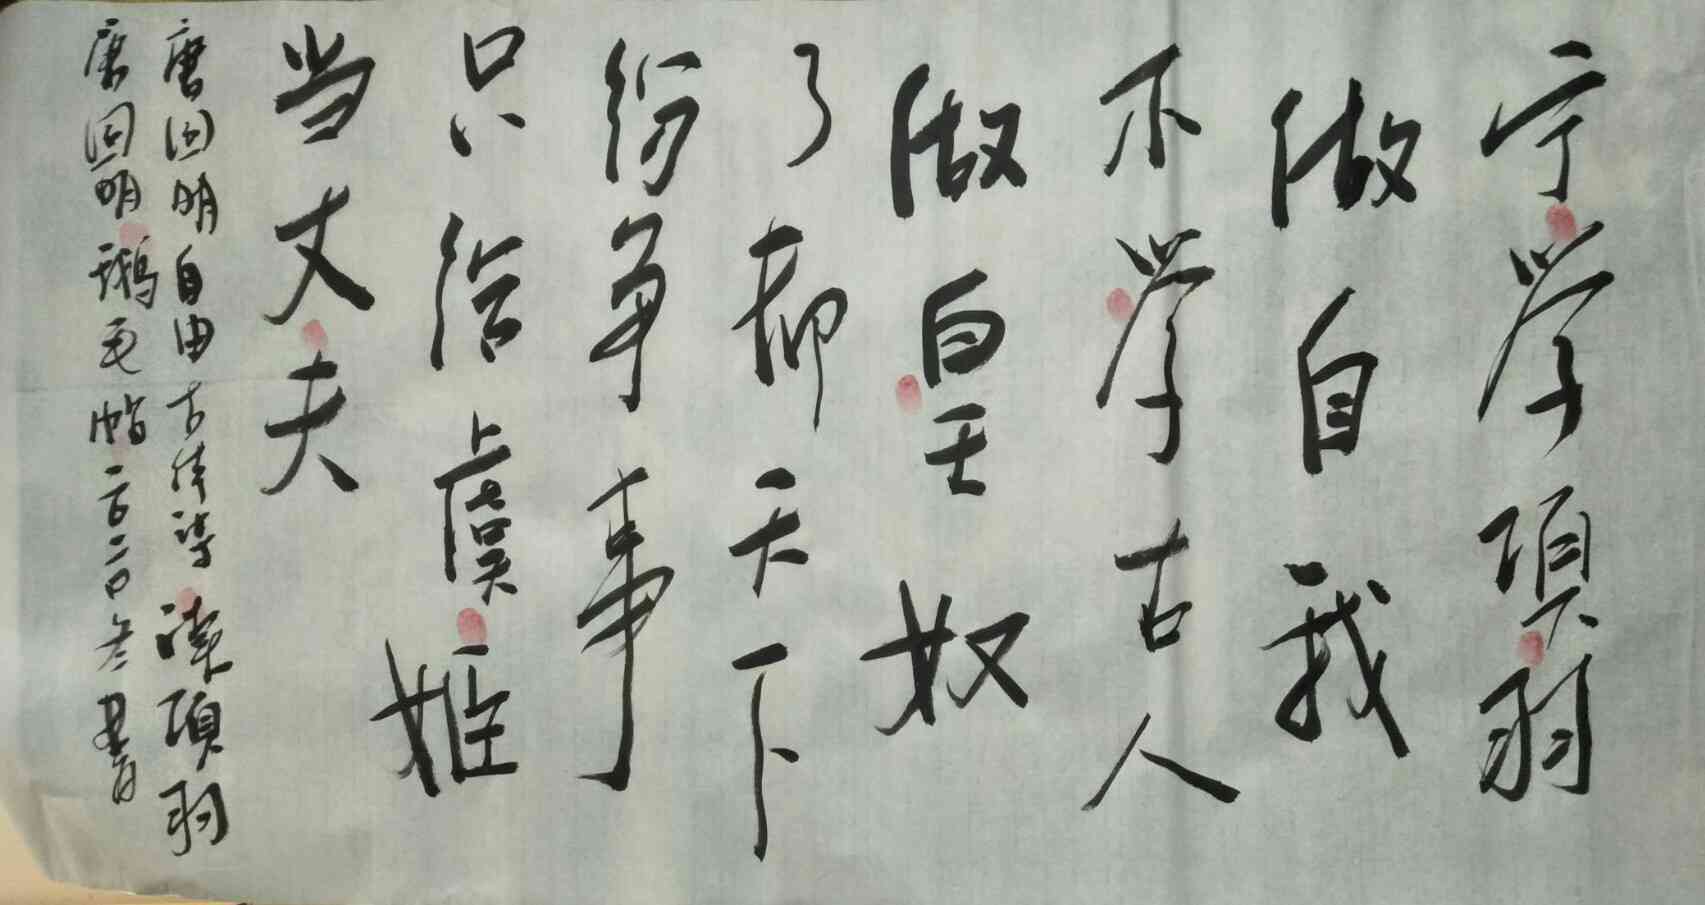 宁学項羽
做自我
不学古人
做皇王奴
了却天下
纷争事
只给虞姬
当丈夫
唐回明自由古体诗 项羽
唐回明鹅毛帖二〇二〇冬書